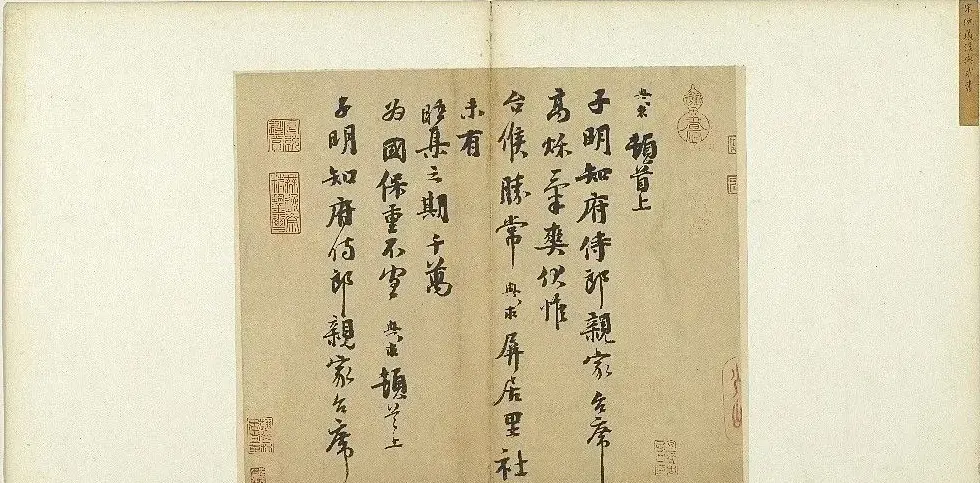 與求頓首上
子明知府侍郎親家台席
高爍氣爽伏惟
台候勝常與求屏居里社
未有
晤集之期千萬
為國保重不宣與求頓首上
子明知府侍郎親家台席